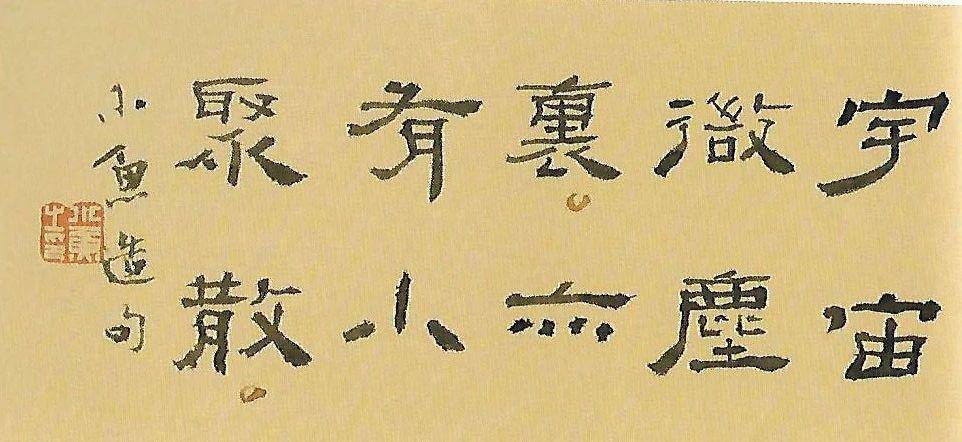 宇宙
微塵
裏亦
有小
聚散
小魚造句